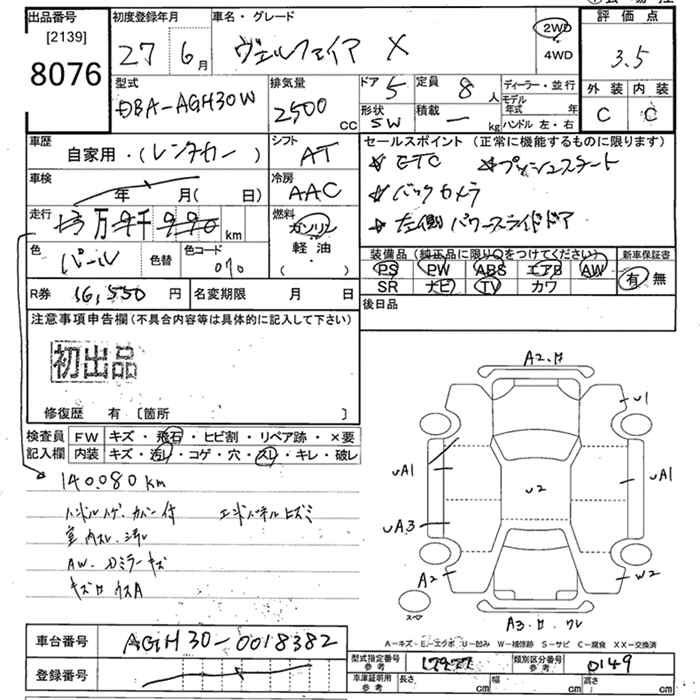 出品番号 初度登録年月 車名・グレード 評価点
[2139]
8076
27 6月 ヴェルファイア X 2WD 4WD 3.5
型式 排気量 ドア 5 定員 8人 ディーラー・並行 外装 内装
DBA-AGH30W 2500cc 形状 SW 積載 ー kg モデル年式 年 C C
ハンドル 左・右
車歴 シフト セールスポイント (正常に機能するものに限ります)
自家用・(レンタカー) AT ETC プッシュスタート
車検 冷房 バックカメラ
年 月(日) AAC 左側パワースライドドア
走行 万 km 燃料 ガソリン
軽油
・( )
色 パール 色替 色コード 070
装備品 (純正品に限り○をつけてください) 新車保証書
PS PW ABS エアB AW 有 無
SR ナビ TV カワ
R券 16,550円 名変期限 月 日 後日品
注意事項申告欄(不具合内容等は具体的に記入して下さい)
初出品
修復歴 有 [箇所 ]
検査員 FW キズ・飛石・ヒビ割・リペア跡・×要
記入欄 内装 キズ・汚レ・コゲ・穴・スレ・キレ・破レ
140,080km
ハンドルハゲ、カバー付 エンドパネルヒズミ
室内スレ、汚レ
AW、ドアミラーキズ
A2
U1
UA1 U2 UA1
UA3
A2 W2
スペア
A3
A－キズ・E－エクボ U－凹み W－補修跡 S－サビ C－腐食 XX－交換済
車台番号 AGH30-0018382
登録番号
型式指定番号 参考 類別区分番号 参考 0149
車庫証明用 参考 長さ cm 幅 cm 高さ cm